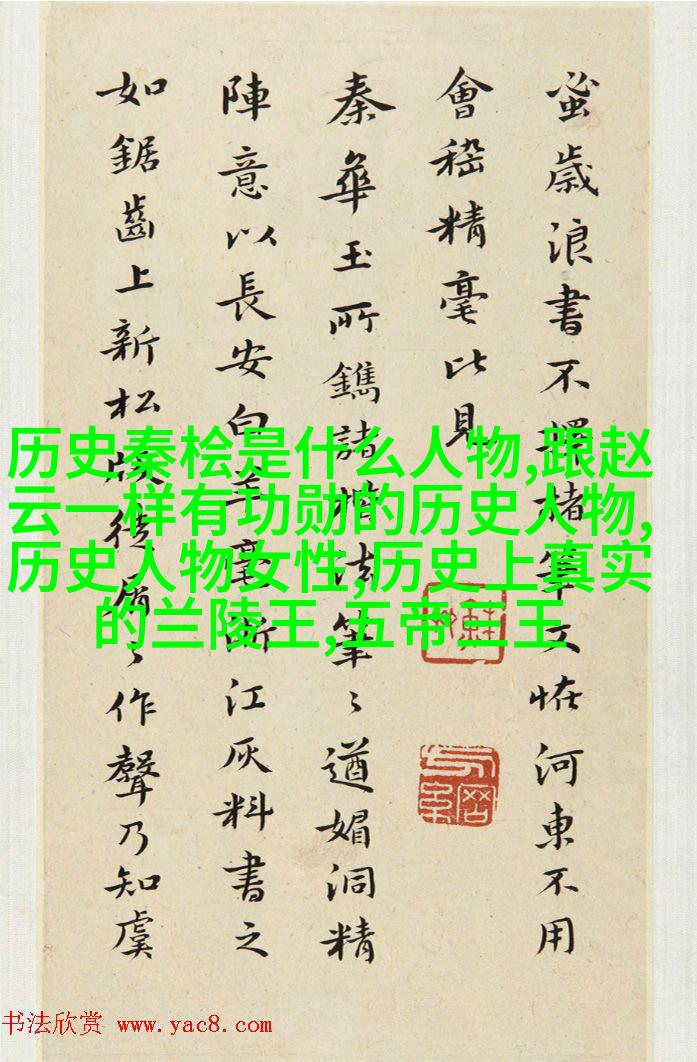 蚤歲浪書不擇楮筆又恠河東不用
會稽精毫比見
秦華玉所鐫諸楷法筆〻遒媚洞精
陣意以長安白羊毫江灰料書之
如鋸齒上新松屑〻作聲乃知虞
历史秦桧是什么人物,跟赵
云一样有功勋的历史人物,
历史人物女性,历史上真实
的兰陵王,五帝三王
书法欣赏 www.yac8.com